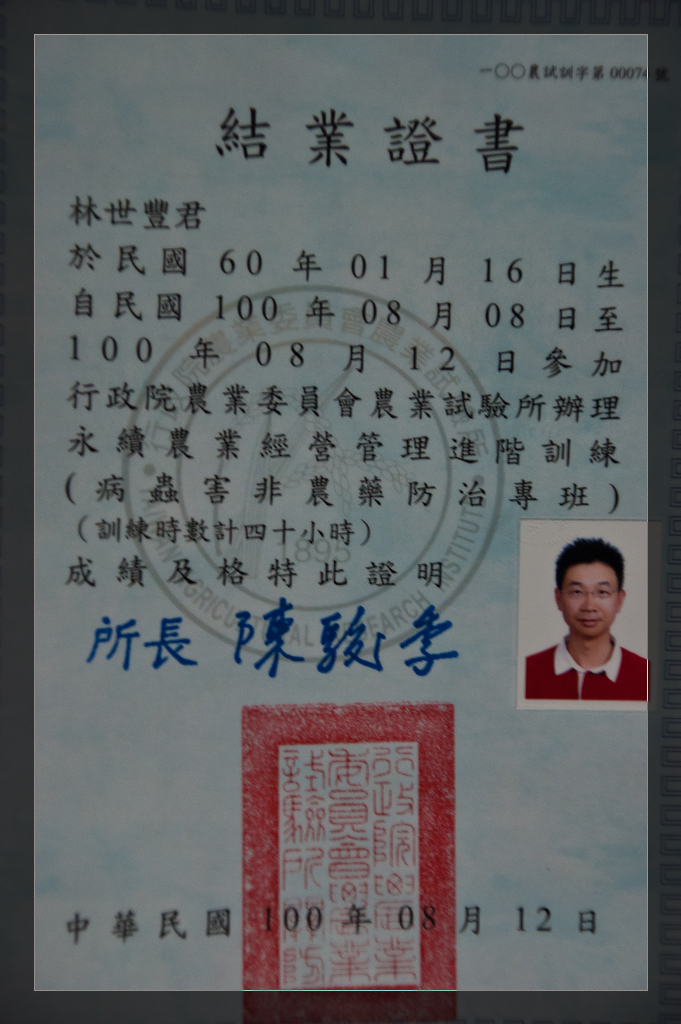 一〇〇農試訓字第 00074 號
結業證書
林世豐君
於民國 60 年 01 月 16 日生
自民國 100 年 08 月 08 日至
100 年 08 月 12 日參加
行政院農業委員會農業試驗所辦理
永續農業經營管理進階訓練
(病蟲害非農藥防治專班)
(訓練時數計四十小時)
成績及格特此證明
所長 陳駿季
中華民國 100 年 08 月 12 日